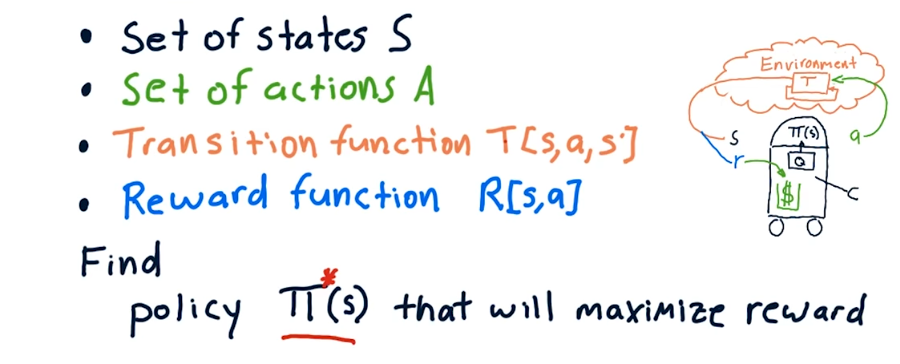 • Set of states S
• Set of actions A
• Transition function T[s,a,s']
• Reward function R[s,a]
Find
policy π*(s) that will maximize reward
Environment
T
S
r
a
π(s)
Q
$
C